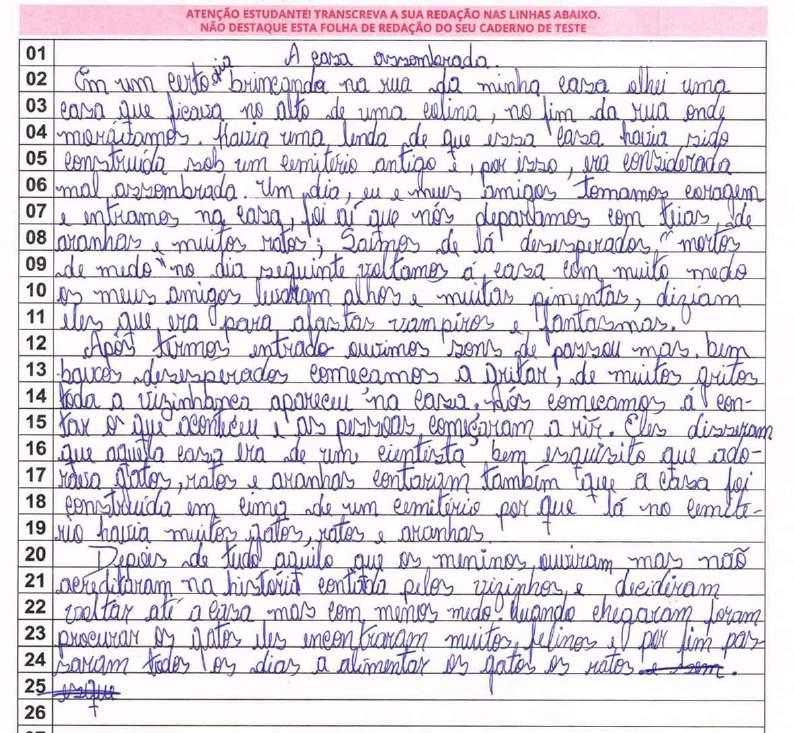 ATENÇÃO ESTUDANTE! TRANSCREVA A SUA REDAÇÃO NAS LINHAS ABAIXO.
NÃO DESTAQUE ESTA FOLHA DE REDAÇÃO DO SEU CADERNO DE TESTE
01 A casa assombrada.
02 Em um certo dia brincando na rua da minha casa olhei uma
03 casa que ficava no alto de uma colina, no fim da rua onde
04 morávamos. Havia uma lenda de que essa casa havia sido
05 construída sob um cemitério antigo e, por isso, era considerada
06 mal assombrada. Um dia, eu e meus amigos tomamos coragem
07 e entramos na casa, foi aí que nós deparamos com teias de
08 aranhas e muitos ratos; Saímos de lá desesperados, "mortos
09 de medo" no dia seguinte voltamos á casa com muito medo
10 os meus amigos levaram alhos e muitas pimentas, diziam
11 eles que era para afastar vampiros e fantasmas.
12 Após termos entrado ouvimos sons de passou mas, bem
13 baixos desesperados começamos a gritar, de muitos gritos
14 toda a vizinhança apareceu na casa. Nós começamos á con-
15 tar o que aconteceu e as pessoas começaram a rir. Eles disseram
16 que aquela casa era de um cientista bem esquisito que ado-
17 rava gatos, ratos e aranhas contaram também que a casa foi
18 construída em cima de um cemitério por que lá no cemité-
19 rio havia muitos gatos, ratos e aranhas.
20 Depois de tudo aquilo que os meninos ouviram mas naõ
21 acreditaram na história contada pelos vizinhos, e decidiram
22 voltar até a casa mas com menos medo. Quando chegaram foram
23 procurar os gatos eles encontraram muitos felinos e por fim pas-
24 saram todos os dias a alimentar os gatos os ratos e sem.
25
26